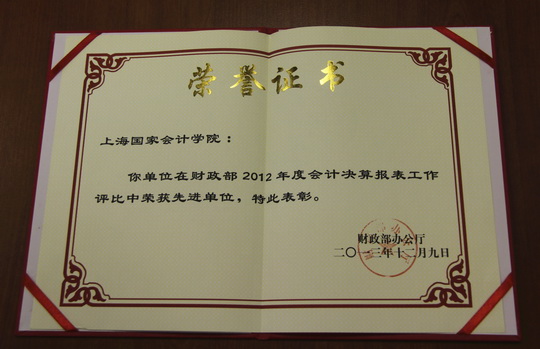 荣誉证书
上海国家会计学院：
你单位在财政部2012年度会计决算报表工作
评比中荣获先进单位，特此表彰。
财政部办公厅
二〇一三年十二月九日